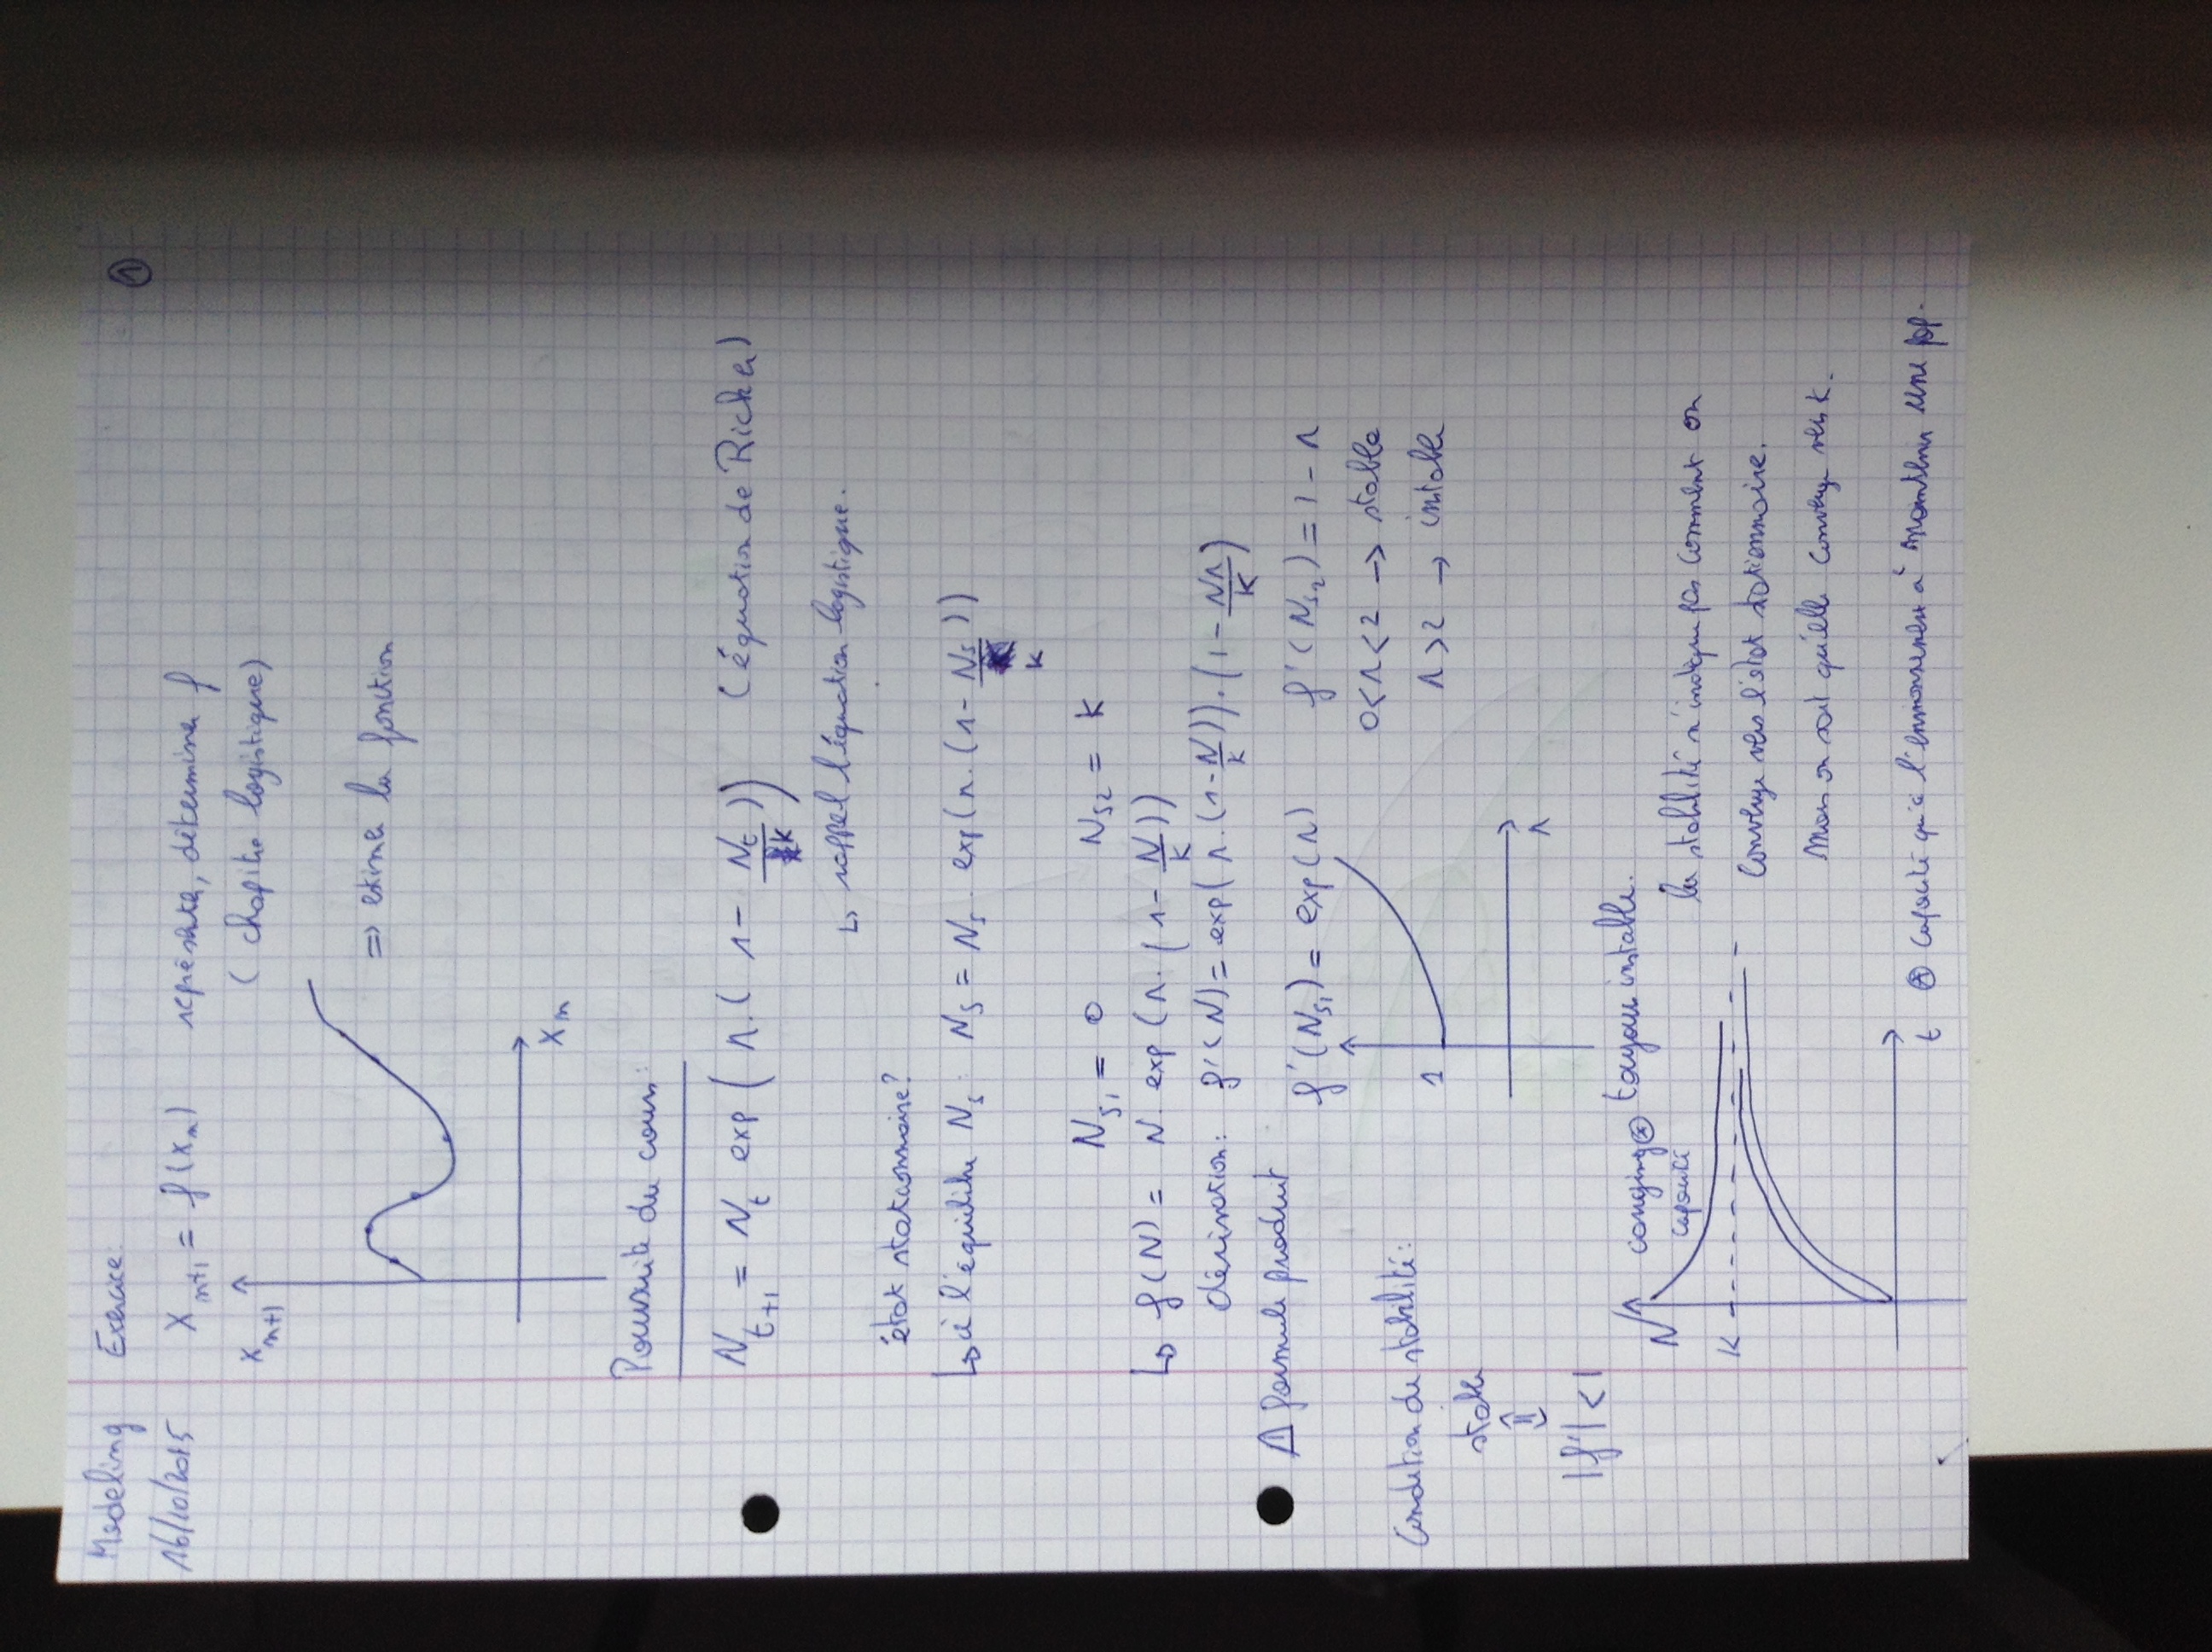 Modeling Exercice: ①
16/10/2015 X_{n+1} = f(X_n) représenter, déterminer f
(chapitre logistique)
X_{n+1}
⇒ estimer la fonction
X_n
Poursuite du cours:
N_{t+1} = N_t exp(r.(1- N_t/K)) (équation de Ricker)
↳ rappel l'équation logistique.
état stationnaire?
↳ à l'équilibre N_s: N_s = N_s. exp(r.(1- N_s/K))
N_{s1} = 0 N_{s2} = K
↳ f(N) = N. exp(r.(1- N/K))
dérivation: f'(N) = exp(r.(1- N/K)).(1- Nr/K)
⚠ formule produit
f'(N_{s1}) = exp(r) f'(N_{s2}) = 1-r
0<r<2 → stable
Condition de stabilité:
1
r>2 → instable
stable
⇕
r
|f'|<1
toujours instable.
N
capacité
la stabilité n'indique pas comment on
K
converge vers l'état stationnaire.
Mais on sait qu'elle converge vers K.
t
⊛ capacité qu'a l'environnement à maintenir une pop.